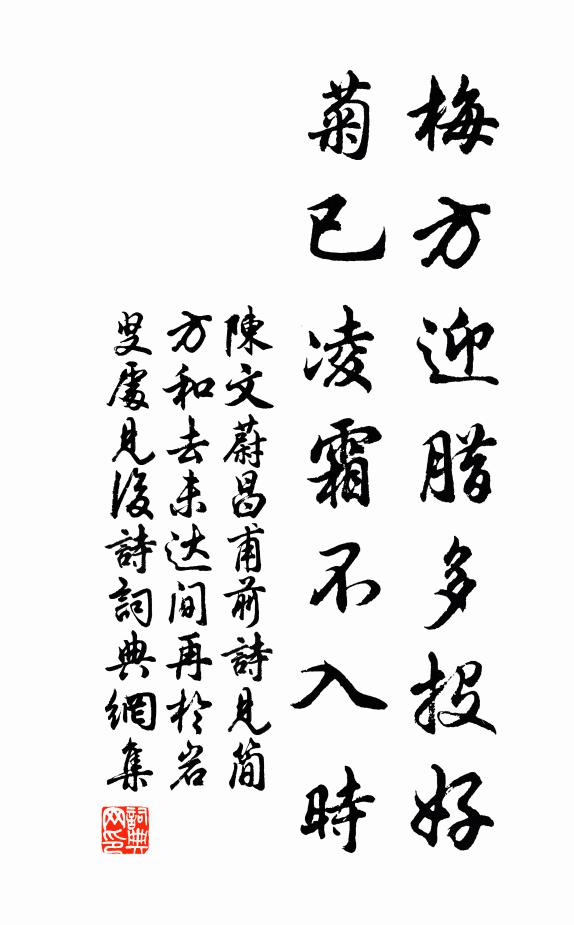 梅方迎腊多投好
菊已凌霜不入時
陳文蔚昌甫前詩見簡
方和去未达间再於岩
叟處見後詩詞典網集
詞典网印